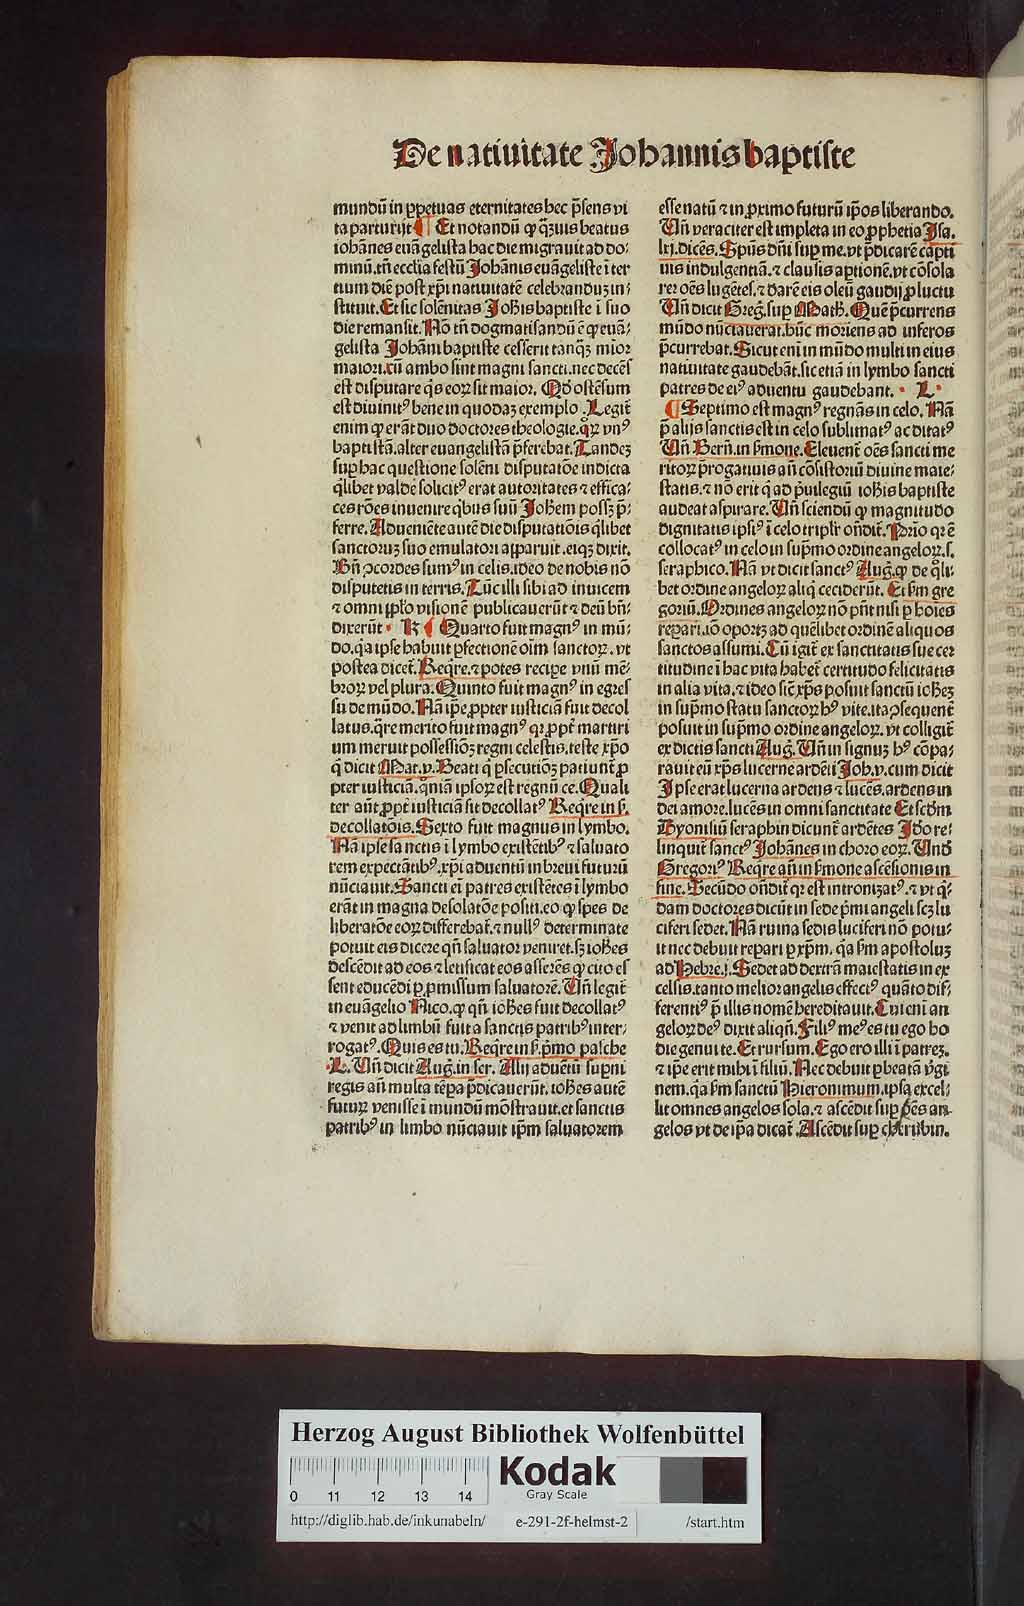 De natiuitate Johannis baptiste
mundū in ꝑpetuas eternitates hec p̄sens vi
ta parturijt ¶ Et notandū ꝙ q̄ꝫuis beatus
iohānes euāgelista hac die migrauit ad do-
minū. tn̄ ecclīa festū Johānis euāgeliste ī ter
tium diē post xp̄i natiuitatē celebranduꝫ in-
stituit. Et sic solēnitas Joh̄is baptiste ī suo
die remansit. Nō tn̄ dogmatisandū ē ꝙ euā-
gelista Johāni baptiste cesserit tanqꝫ mīor
maiori. cū ambo sint magni sancti. nec decēs
est disputare q̄s eoꝝ sit maior. Qd̓ ostēsum
est diuinitꝰ bene in quodaꝫ exemplo. Legit̄
enim ꝙ erāt duo doctores theologie. qꝝ vnꝰ
baptistā. alter euangelistā p̄ferebat. Tandeꝫ
suꝑ hac questione solēni disputatōe indicta
q̄libet valde solicitꝰ erat autoritates ⁊ effica-
ces rōes inuenire qͥbus suū Joh̄em possꝫ p̄-
ferre. Adueniēte autē die disputatiōis q̄libet
sanctoruꝫ suo emulatori apparuit. eiqꝫ dixit.
Bn̄ ↄcordes sumꝰ in celis. ideo de nobis nō
disputetis in terris. Tūc illi sibi ad inuicem
⁊ omni ipl̓o visionē publicauerūt ⁊ deū bn̄-
dixerūt. K ¶ Quarto fuit magnꝰ in mū-
do. qa ipse habuit ꝑfectionē oīm sanctoꝝ. vt
postea dicet̄. Reqͥre. ⁊ potes recipe vnū mē-
broꝝ vel plura. Quinto fuit magnꝰ in egres
su de mūdo. Nā ip̄e ꝓpter iusticiā fuit decol
latus. q̄re merito fuit magnꝰ qꝛ ꝓpt̄ martiri
um meruit possessiōꝫ regni celestis. teste xp̄o
q̄ dicit Mat. v. Beati q̄ ꝑsecutiōꝫ patiunt̄ ꝓ
pter iusticiā. qm̄iā ipsoꝝ est regnū ce. Quali
ter aūt ꝓpt̄ iusticiā sit decollatꝰ Reqͥre in s̄.
decollatōis. Sexto fuit magnus in lymbo.
Nā ipse sanctis ī lymbo existētibꝰ ⁊ saluato
rem expectātibꝰ. xp̄i aduentū in breui futurū
nūciauit. Sancti em̄ patres existētes ī lymbo
erāt in magna desolatōe positi. eo ꝙ spes de
liberatōe eoꝝ differebat̄. ⁊ nullꝰ determinate
potuit eis dicere qn̄ saluator veniret. sꝫ ioh̄es
descēdit ad eos ⁊ letificat eos asserēs ꝙ cito es
sent educēdi ꝑ ꝓmissum saluatorē. Un̄ legit̄
in euāgelio Nico. ꝙ qn̄ ioh̄es fuit decollatꝰ
⁊ venit ad limbū fuit a sanctis patribꝰ inter-
rogatꝰ. Quis es tu. Reqͥre in s̄. pͥmo pasche
.L. Un̄ dicit Aug. in ser. Alij aduētū supni
regis an̄ multa tēpa p̄dicauerūt. ioh̄es autē
futuꝝ venisse ī mundū mōstrauit. et sanctis
patribꝰ in limbo nūciauit ip̄m saluatorem
esse natū ⁊ in ꝓximo futurū ip̄os liberando.
Un̄ veraciter est impleta in eo ꝓphetia Isa.
lxj. dicēs. Sp̄us dn̄i suꝑ me. vt p̄dicarē capti
uis indulgentiā. ⁊ clausis aptionē. vt cōsola
rer oēs lugētes. ⁊ darē eis oleū gaudij ꝓ luctu
Un̄ dicit Greg. suꝑ Math. Quē p̄currens
mūdo nūciauerat. hūc moriens ad inferos
p̄currebat. Sicut em̄ in mūdo multi in eius
natiuitate gaudebāt. sic etiā in lymbo sancti
patres de eiꝰ aduentu gaudebant. L.
¶ Septimo est magnꝰ regnās in celo. Nā
p̄ alijs sanctis est in celo sublimatꝰ ac ditatꝰ
Un̄ Bern̄. in s̄mone. Eleuent̄ oēs sancti me
ritoꝝ p̄rogatiuis an̄ cōsistoriū diuine maie-
statis. ⁊ nō erit q̄ ad p̄uilegiū ioh̄is baptiste
audeat aspirare. Un̄ sciendū ꝙ magnitudo
dignitatis ipsiꝰ ī celo triplr̄ on̄dit̄. Prīo qꝛ ē
collocatꝰ in celo in sup̄mo ordine angeloꝝ. s.
seraphico. Nā vt dicit sanctꝰ Aug. ꝙ de q̄li-
bet ordine angeloꝝ aliq̄ ceciderūt. Et s̄m gre
goriū. Ordines angeloꝝ nō pn̄t nisi ꝑ hoīes
repari. iō oportꝫ ad quēlibet ordinē aliquos
sanctos assumi. Cū igit̄ ex sanctitatis sue cer
titudine ī hac vita habet̄ certitudo felicitatis
in alia vita. ⁊ ideo sic̄ xp̄s posuit sanctū ioh̄eꝫ
in sup̄mo statu sanctoꝝ hꝰ vite. ita ↄsequent̄
posuit in sup̄mo ordine angeloꝝ. vt colligit̄
ex dictis sancti Aug. Un̄ in signuꝫ hꝰ cōpa-
rauit eū xp̄s lucerne ardēti Joh. v. cum dicit
Ipse erat lucerna ardens ⁊ lucēs. ardens in
dei amore. lucēs in omni sanctitate Et scd̓m
Dyonisiū seraphin dicunt̄ ardētes Ido re-
linquit̄ sanctꝰ Johānes in choro eoꝝ. Und̓
Gregoriꝰ Reqͥre an̄ in s̄mone ascēsionis in
fine. Secūdo on̄dit̄ qꝛ est intronizatꝰ. ⁊ vt q̄-
dam doctores dicūt in sede pͥmi angeli scꝫ lu
ciferi sedet. Nā ruina sedis luciferi nō potu-
it nec debuit repari ꝑ xp̄m. qa s̄m apostoluꝫ
ad Hebre. j. Sedet ad dextrā maiestatis in ex
celsis. tanto melior angelis effectꝰ quāto dif-
ferentiꝰ p̄ illis nomē hereditauit. Cui em̄ an
geloꝝ deꝰ dixit aliqn̄. Filiꝰ meꝰ es tu ego ho
die genui te. Et rursum. Ego ero illi ī patreꝫ.
⁊ ip̄e erit mihi ī filiū. Nec debuit ꝑ beatā v̓gi
nem. qa s̄m sanctū Hieronimum. ipsa excel-
lit omnes angelos sola. ⁊ ascēdit suꝑ oēs an-
gelos vt de ip̄a dicat̄. Ascēdit suꝑ cherubin.
Herzog August Bibliothek Wolfenbüttel
0 11 12 13 14
Kodak
Gray Scale
http://diglib.hab.de/inkunabeln/ e-291-2f-helmst-2 /start.htm